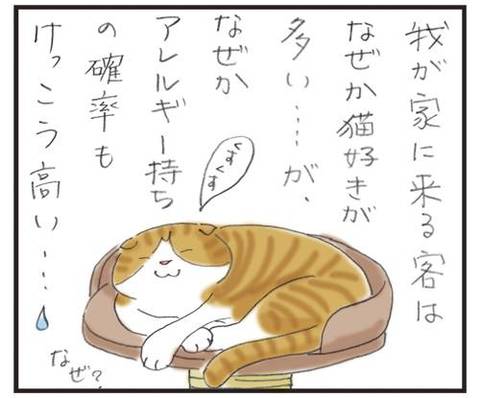 我が家に来る客は
なぜか猫好きが
多い……が、
なぜか
アレルギー持ち
の確率も
けっこう高い……
くすくす
なぜ?